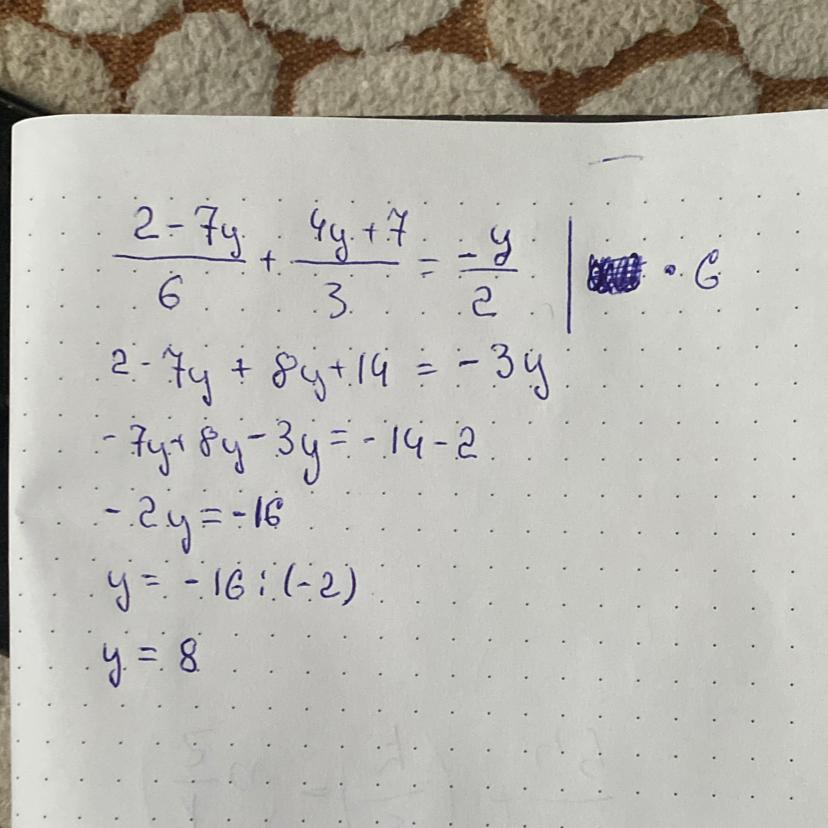 (2-7y)/6 + (4y+7)/3 = -y/2 | · 6
2-7y + 8y+14 = -3y
-7y+8y-3y=-14-2
-2y=-16
y= -16:(-2)
y = 8